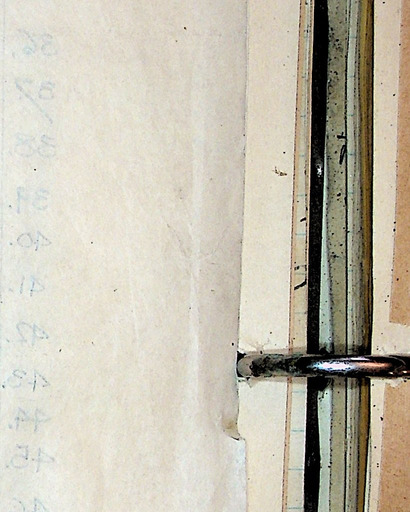 36.
37.
38.
39.
40.
41.
42.
43.
44.
45.
46